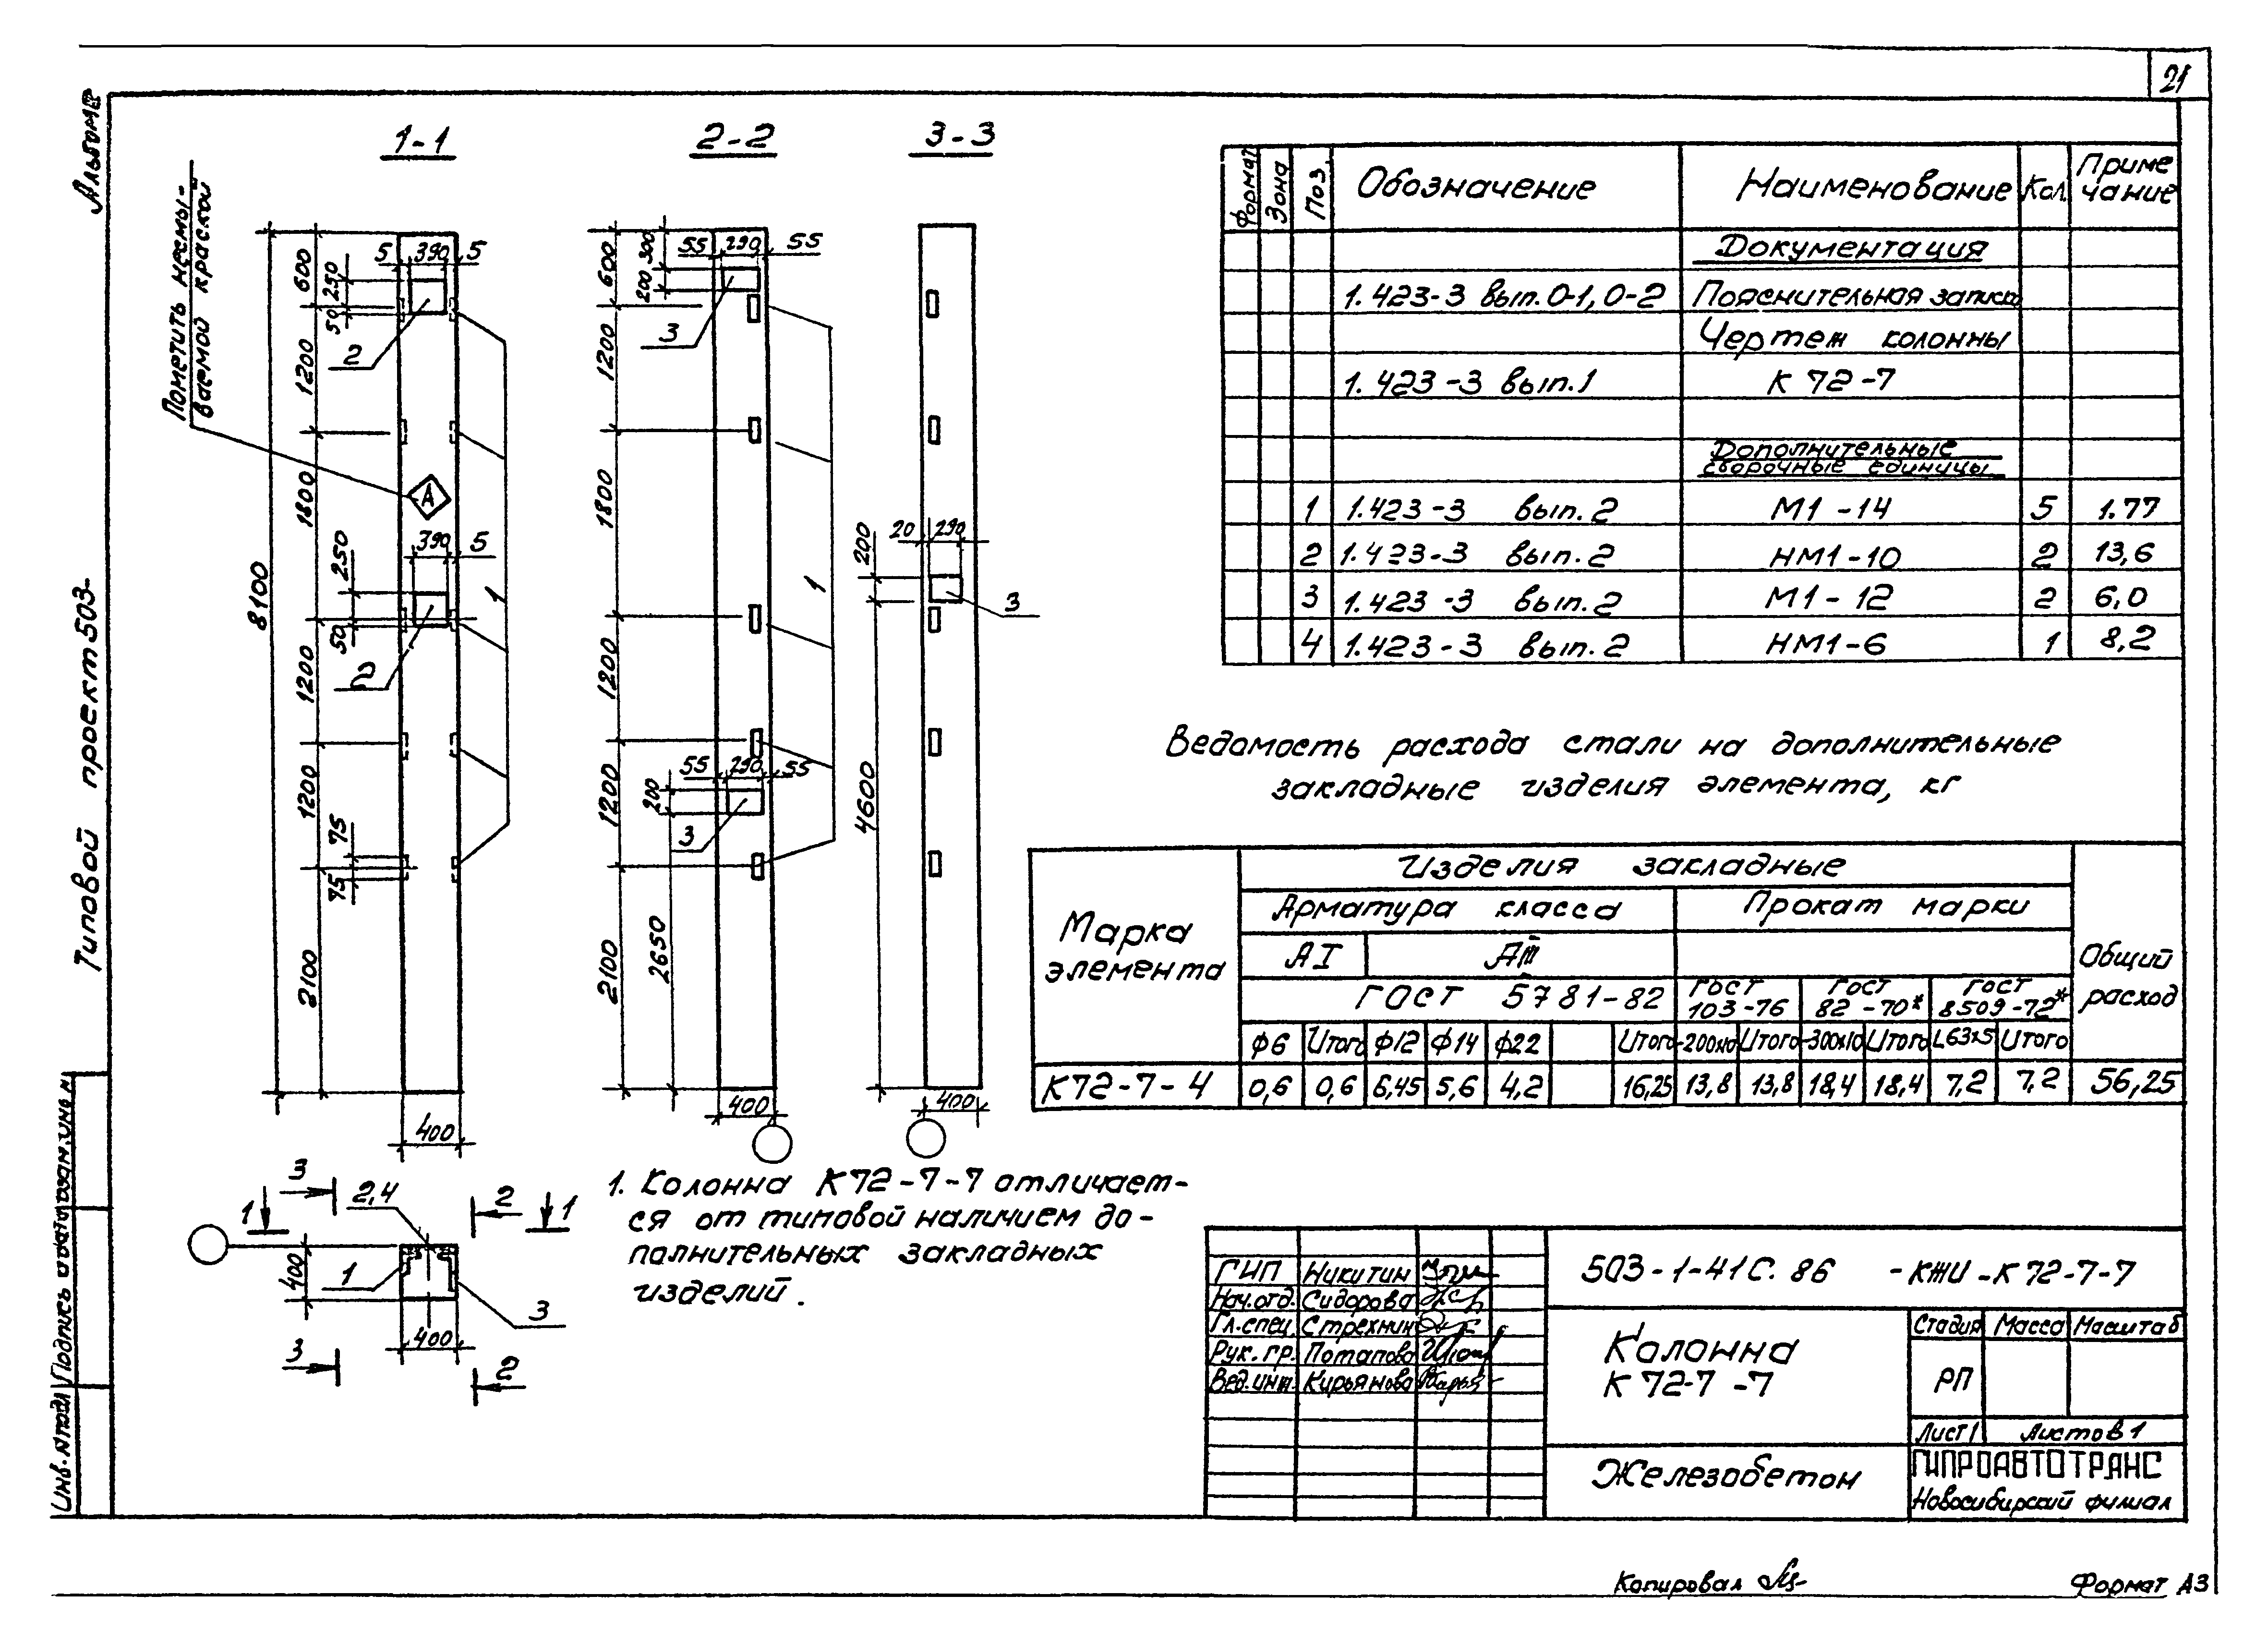 21
Альбом
Типовой проект 503-
Инв.№подл Подпись и дата Взам.инв №
1-1
2-2
3-3
Пометить несмы-
ваемой краской
А
8100
600
1200
1800
1200
1200
2100
250
50
5 390 5
2
250
50
390 5
2
75
75
1
400
600
1200
1800
1200
1200
2100
300
200
55 290 55
3
1
55 290 55
200
3
2650
400
20 290
200
3
4600
400
3
2,4
2
1
1
400
1
3
400
3
2
1. Колонна К72-7-7 отличает-
ся от типовой наличием до-
полнительных закладных
изделий.
Формат Зона Поз. Обозначение Наименование Кол. Приме
чание
Документация
1.423-3 вып.0-1, 0-2 Пояснительная записка
Чертеж колонны
1.423-3 вып.1 К 72-7
Дополнительные
сборочные единицы
1 1.423-3 вып.2 М1-14 5 1.77
2 1.423-3 вып.2 НМ1-10 2 13,6
3 1.423-3 вып.2 М1-12 2 6,0
4 1.423-3 вып.2 НМ1-6 1 8,2
Ведомость расхода стали на дополнительные
закладные изделия элемента, кг
Марка
элемента
Изделия закладные
Общий
расход
Арматура класса Прокат марки
АI АIII
ГОСТ 5781-82 ГОСТ
103-76 ГОСТ
82-70* ГОСТ
8509-72*
ф6 Итого ф12 ф14 ф22 Итого -200х10 Итого -300х10 Итого L63х5 Итого
К72-7-4 0,6 0,6 6,45 5,6 4,2 16,25 13,8 13,8 18,4 18,4 7,2 7,2 56,25
ГИП Никитин
Нач.отд. Сидорова
Гл.спец. Стрехнин
Рук.гр. Потапова
Вед.инж. Кирьянова
503-1-41С.86 -КЖИ-К72-7-7
Колонна
К 72-7-7
Стадия Масса Масштаб
РП
Лист 1 Листов 1
Железобетон
ГИПРОАВТОТРАНС
Новосибирский филиал
Копировал
Формат А3